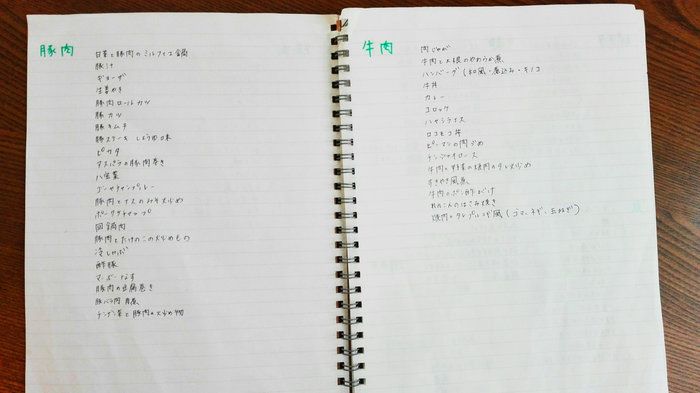 豚肉
白菜と豚肉のミルフィーユ鍋
豚汁
ギョーザ
生姜やき
豚肉ロールカツ
豚カツ
豚キムチ
豚ステーキ しょうゆ味
ピカタ
アスパラの豚肉巻き
八宝菜
ゴーヤチャンプルー
豚肉とナスのみそ炒め
ポークケチャップ
回鍋肉
豚肉とたけのこの炒めもの
冷しゃぶ
酢豚
マーボーなす
豚肉の豆腐巻き
豚バラ肉角煮
チンゲン菜と豚肉の炒め物
牛肉
肉じゃが
牛肉と大根のやわらか煮
ハンバーグ(和風・煮込み・キノコ
牛丼
カレー
コロッケ
ハヤシライス
ロコモコ丼
ピーマンの肉づめ
チンジャオロース
牛肉と野菜の焼肉のタレ炒め
すきやき風煮
牛肉のポン酢がけ
れんこんのはさみ焼き
焼肉サンプルコギ風(ゴマ、ネギ、玉ねぎ)